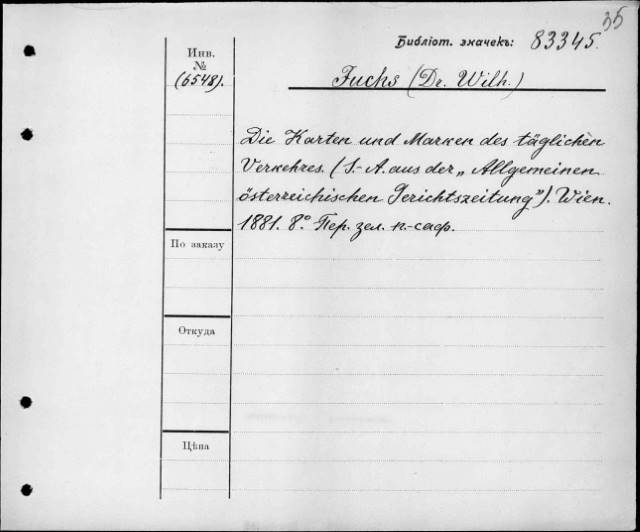 35
Библіот. значекъ: 83345.
Инв.
№
(6548).
Fuchs (Dr. Wilh.)
Die Karten und Marken des täglichen
Verkehres. (S.-A. aus der „Allgemeinen
österreichischen Gerichtszeitung"). Wien.
1881. 8° Пер. зел. п.-саф.
По заказу
Откуда
Цѣна